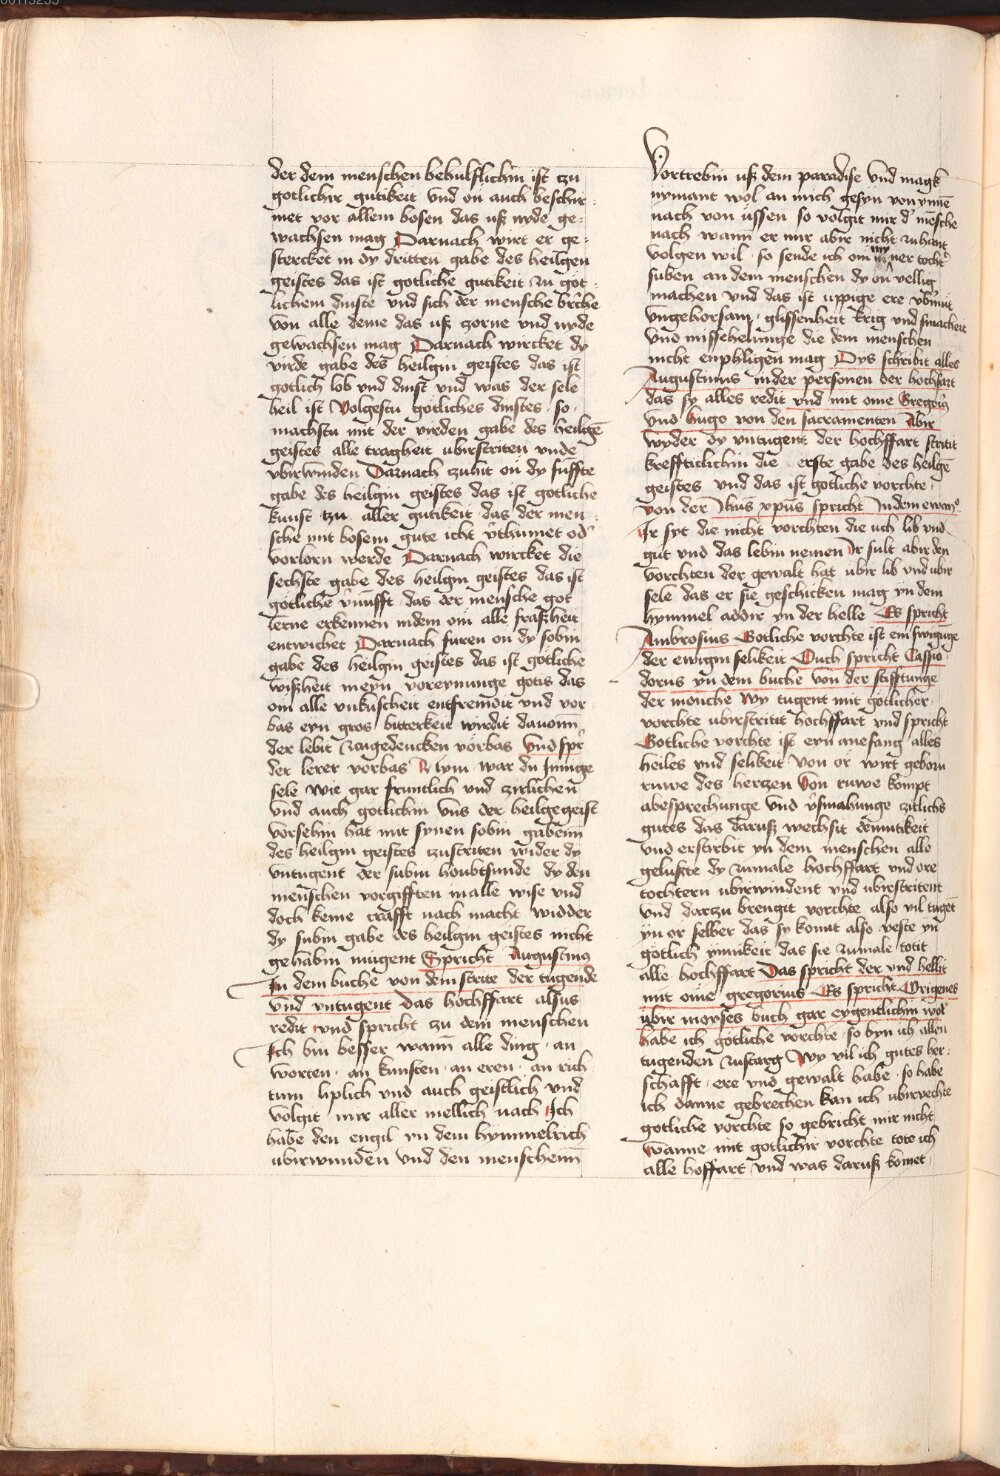 der dem menschen behulflichin ist czu
gotlichir gutikeit vnd on auch beschir-
met vor allem bosen das uß nyde ge-
wachsen mag Darnach wirt er ge-
stercket in dy dritten gabe des heiligen
geistes das ist gotliche gutikeit zu got-
lichem dinste vnd sich der mensche brche
von alle deme das uß zorne vnd nyde
gewachsen mag Darnach wircket dy
virde gabe des heilgin geistes das ist
gotlich lob vnd dinst vnd was der sele
heil ist Volgestu gotliches dinstes so
machstu mit der vierden gabe des heilgē
geistes alle tragheit ubirstriten unde
vbirwinden Darnach zuhit on dy fünffte
gabe des heilgin geistes das ist gotliche
kunst tzu aller gutikeit das der men
sche mit bosem gute icht vthumet od
vorlorn werde Darnach wircket die
sechste gabe des heilgin geistes das ist
gotliche vnufft das der mensche got
lerne erkennen indem om alle fraßheit
entwichet Darnach furen on dy sobin
gabe des heilgin geistes das ist gotliche
wißheit meyn voreynunge gotis das
om alle unkuscheit entfremdit vnd vor
bas eyn gros bitterkeit wirdit dauonn
der lebit zugedencken vorbas Vnd spr
der lerer vorbas Nym war du Innige
sele wie gar fruntlich vnd zirlichen
vnd auch gotlichin vns der heilgegeist
vorsehin hat mit synen sobin gabenn
des heilgin geistes zustriten wider dy
untugent der subin houbtsunde dy den
menschen vorgifften in alle wise vnd
doch keine crafft nach macht widder
dy subin gabe des heilgin geistes nicht
gehabin mugent Spricht Augustinus
In dem buche von dem strite der tugende
vnd vntugent das hochffart alsus
redit vnd spricht zu dem menschen
Ich bin besser wann alle ding an
worten an kunsten an eren an rich
tum liplich vnd auch geistlich vnd
volgit mir aller mellich nach Ich
habe den engil yn dem hymmelrich
ubirwunden vnd den menschenn
Vortrebin uß dem paradise vnd magk
nymant wol an mich gesyn von ynne
nach von ussen so volgit mir d mēsche
nach wann er mir abir nicht zuhant
volgen wil so sende ich om myner tochtˀ
suben an dem menschen dy on vellig
machen vnd das ist uppige ere vbirmut
vngehorsam glissenheit krig vnd smacheit
vnd missehelunge die dem menschen
nicht enphligen mag Dys schribit alles
Augustinus inder personen der hochfart
das sy alles redit vnd mit ome Gregorius
vnd Hugo von den sacramenten Abir
wyder dy vntugent der hochffart stritit
krefftiklichin die erste gabe des heilgē
geistes vnd das ist gotliche vorchte
von der Ihus xpus spricht Indem ewan
Ir syt die nicht vorchten die uch lib vnd
gut vnd das lebin nemen Ir sult abir den
vorchten der gewalt hat ubir lib vnd ubir
sele das er sie geschicken mag yn dem
hymmel addir yn der helle Es spricht
Ambrosius Gotliche vorchte ist ein
der ewigin selikeit Ouch spricht Cassio
dorus yn dem buche von der stifftunge
der monche wy tugent mit gotlicher
vorchte ubirstritit hochffart vnd spricht
Gotliche vorchte ist eyn anefang alles
heiles vnd selikeit von or wirt geborn
ruwe des herzen Von ruwe kompt
abesprechunge vnd vsmahunge zitlichs
gutes das daruß wechsit demutikeit
vnd erstirbit yn dem menschen alle
geluste dy zumale hochffart vnd ore
tochtern ubirwindent vnd ubirstritent
vnd darzu brengit vorchte also vil tugēt
yn or selber das sy komit also veste yn
gotlich ynnikeit das sie zumale totit
alle hochffart Das spricht der vnd heldit
mit ome gregorius Es spricht Origenes
ubir moyses buch gar eygentlichin wol
habe ich gotliche vorchte so byn ich allen
tugenden zustarg Wy vil ich gutes her-
schafft ere vnd gewalt habe so habe
ich danne gebrechen kan ich ubirvechte
gotliche vorchte so gebricht mir nicht
wanne mit gotlichir vorchte tote ich
alle hoffart vnd was daruß komet